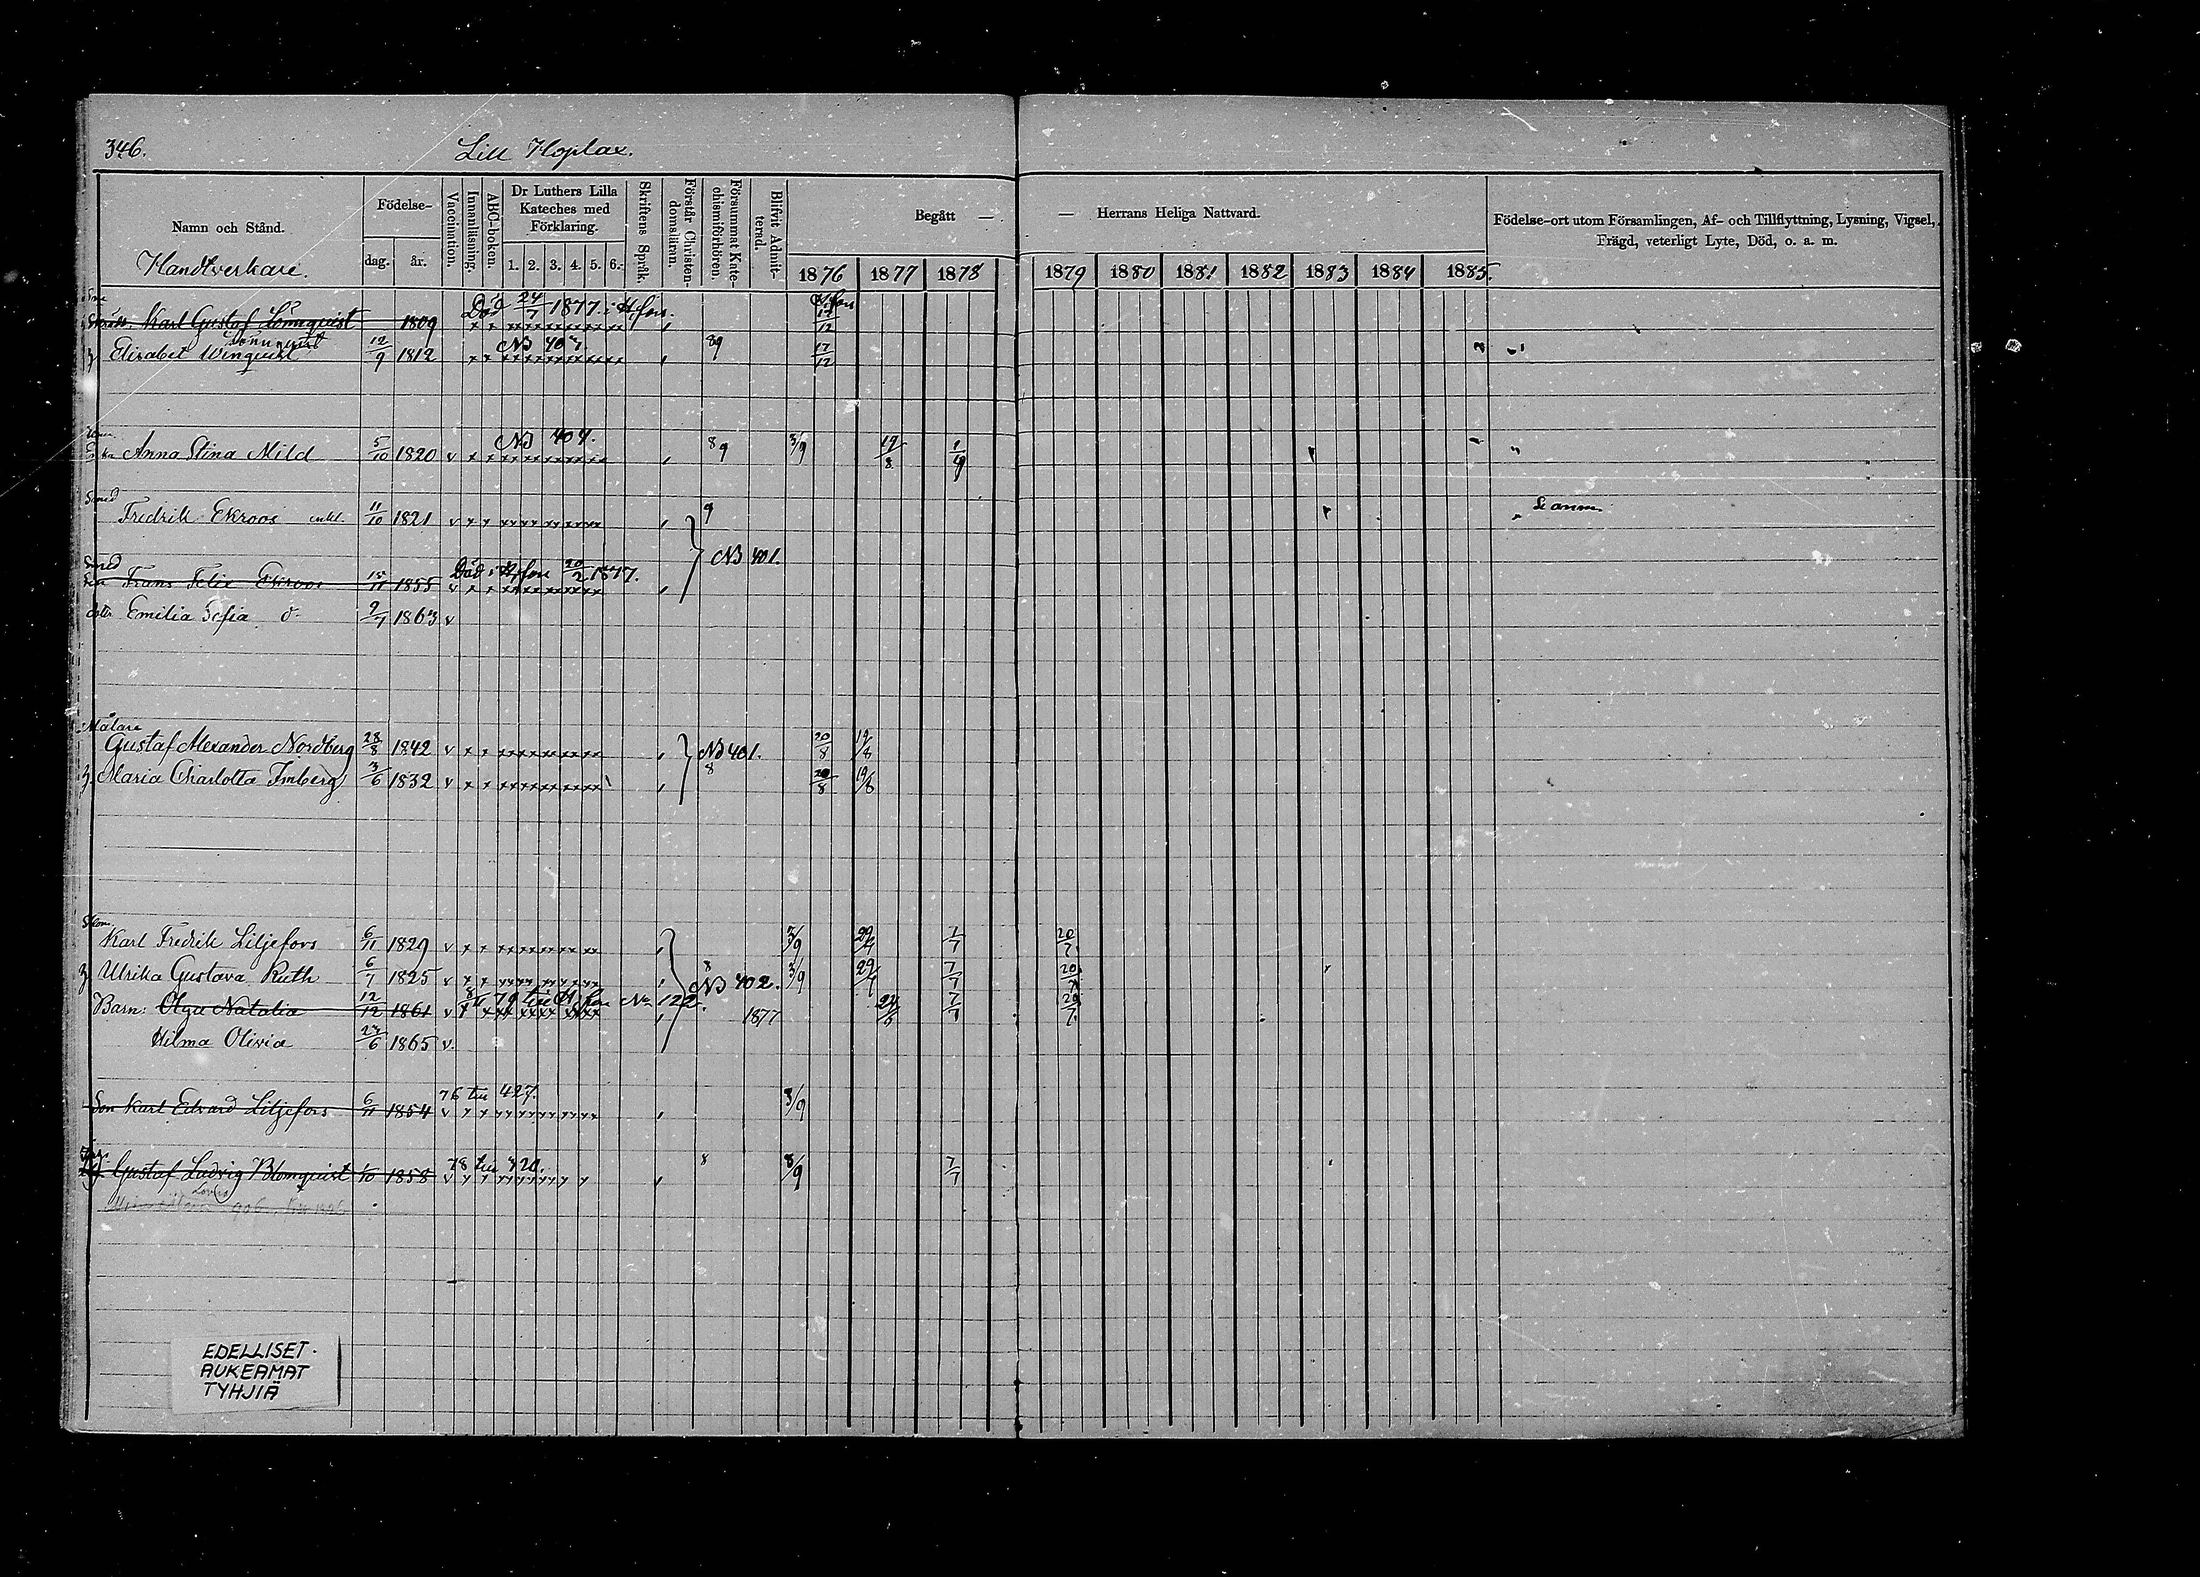 346. Lill Hoplax.
Namn och Stånd. Födelse- dag. år. Vaccination. Innanläsning. ABC-boken. Dr Luthers Lilla Kateches med Förklaring. 1. 2. 3. 4. 5. 6. Skriftens Språk. Förstår Christendomsläran. Försummat Katechismiförhören. Blifvit Admitterad. Begått — — Herrans Heliga Nattvard. Födelse-ort utom Församlingen, Af- och Tillflyttning, Lysning, Vigsel, Frägd, veterligt Lyte, Död, o. a. m.
Handtverkare. 1876 1877 1878 1879 1880 1881 1882 1883 1884 1885.
Död 24/7 1877 i H.fors. H.fors
Karl Gustaf Lönnquist 1809 17/12
Lönnquist NB 407. 89
Elisabet Winquist 12/9 1812 17/12
NB 404.
Anna Stina Mild 5/10 1820 v 89 3/9 19/8 1/9
Smed
Fredrik Ekroos enkl. 11/10 1821 v 9 Se anm.
NB 401.
Smed Död i H.fors 20/2 1877.
Frans Felix Ekroos 15/11 1855 v
dottr Emilia Sofia d- 2/7 1863 v
Målare
Gustaf Alexander Nordberg 28/8 1842 v NB 401. 20/8 19/8
h Maria Charlotta Imberg 3/6 1832 v 8 20/8 19/8
Skom.
Karl Fredrik Liljefors 6/11 1829 v 3/9 29/7 1/7 20/7
h Ulrika Gustava Ruth 6/7 1825 v 8 NB 402. 3/9 29/7 7/7 20/7
8/11 79 till H.fors No 122.
Barn: Olga Natalia 12/12 1861 v 1877 24/6 7/7 20/7
Hilma Olivia 24/6 1865 v.
76 till 427.
Son Karl Edvard Liljefors 6/11 1854 v 3/9
78 till 420.
Gustaf Ludvig Blomquist 1/10 1858 v 8 8/9 7/7
EDELLISET
AUKEAMAT
TYHJIÄ